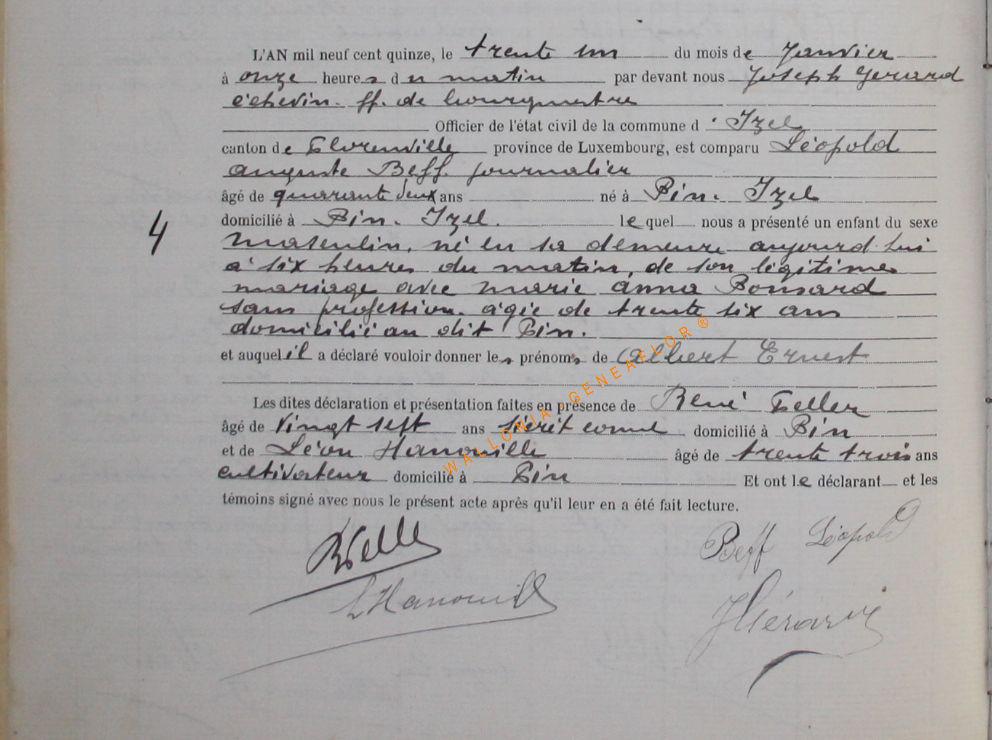 L'AN mil neuf cent quinze, le trente un du mois de Janvier
à onze heures du matin par devant nous Joseph Gerard
échevin. ff. de bourgmestre
Officier de l'état civil de la commune d'Izel
canton de Florenville province de Luxembourg, est comparu Léopold
auguste Beff. journalier
âgé de quarante deux ans né à Pin. Izel
domicilié à Pin. Izel. lequel nous a présenté un enfant du sexe
4
masculin, né en sa demeure aujourd hui
à six heures du matin, de son légitime
mariage avec marie anna Ponsard
sans profession. agée de trente six ans
domicilié au dit Pin.
et auquel il a déclaré vouloir donner les prénoms de Albert Ernest
WALLONIA-GENEAFLOR ®
Les dites déclaration et présentation faites en présence de René Feller
âgé de vingt sept ans domicilié à Pin
et de Léon Hanouille âgé de trente trois ans
cultivateur domicilié à Pin Et ont le déclarant et les
témoins signé avec nous le présent acte après qu'il leur en a été fait lecture.
Beff Léopold